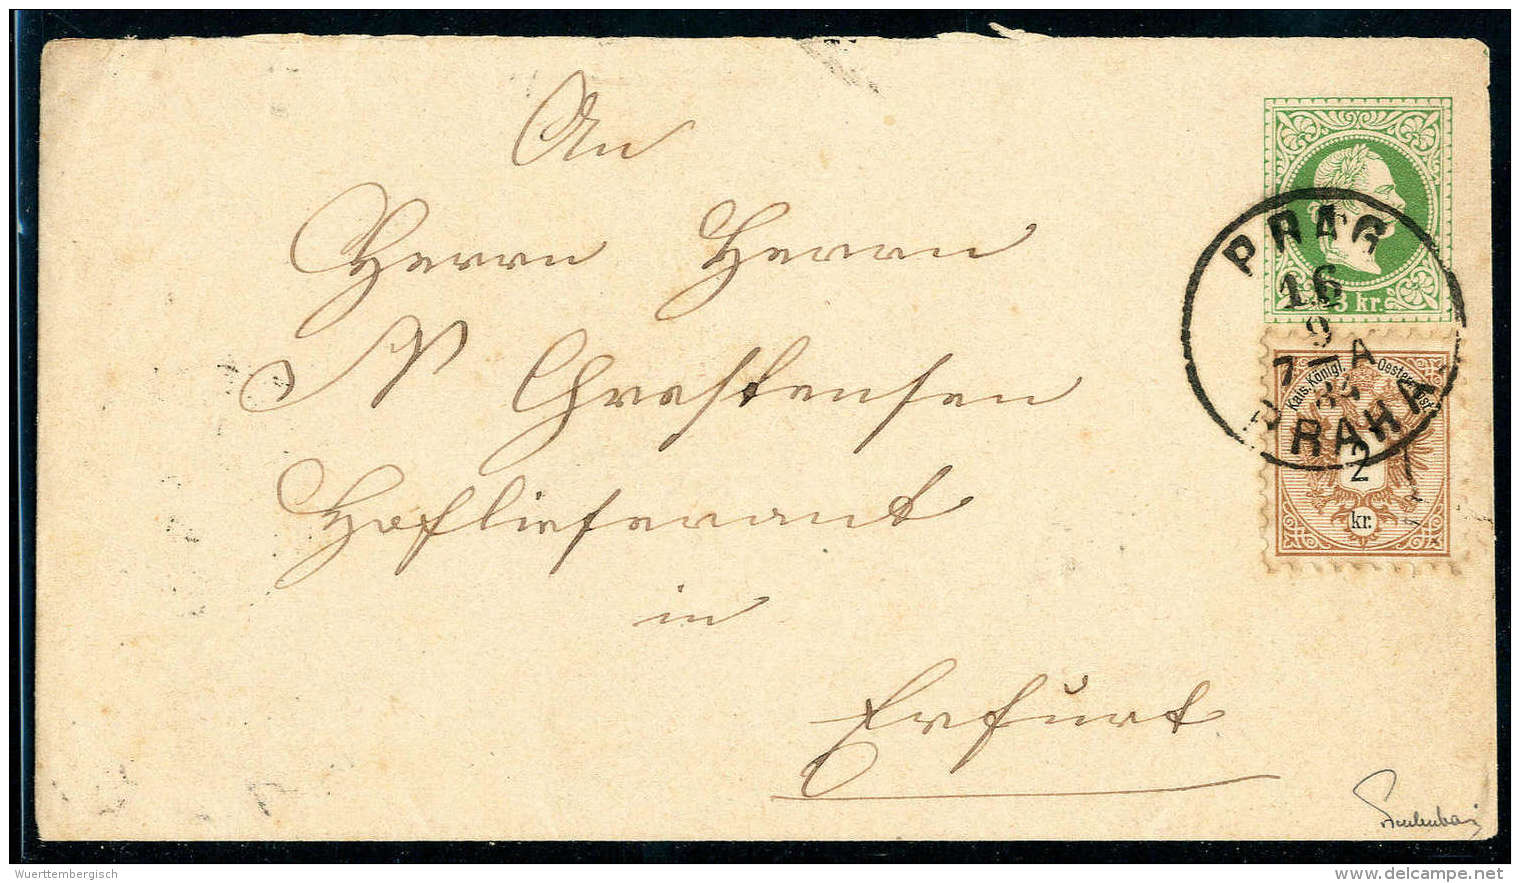 An
Herrn Herrn
N Chrestensen
Hoflieferant
in
Erfurt
3 kr.
PRAG
16
9
7 A
84
PRAHA
Kais. Königl. Oesterr. Post
2
kr.
Wuerttembergisch
www.delcampe.net